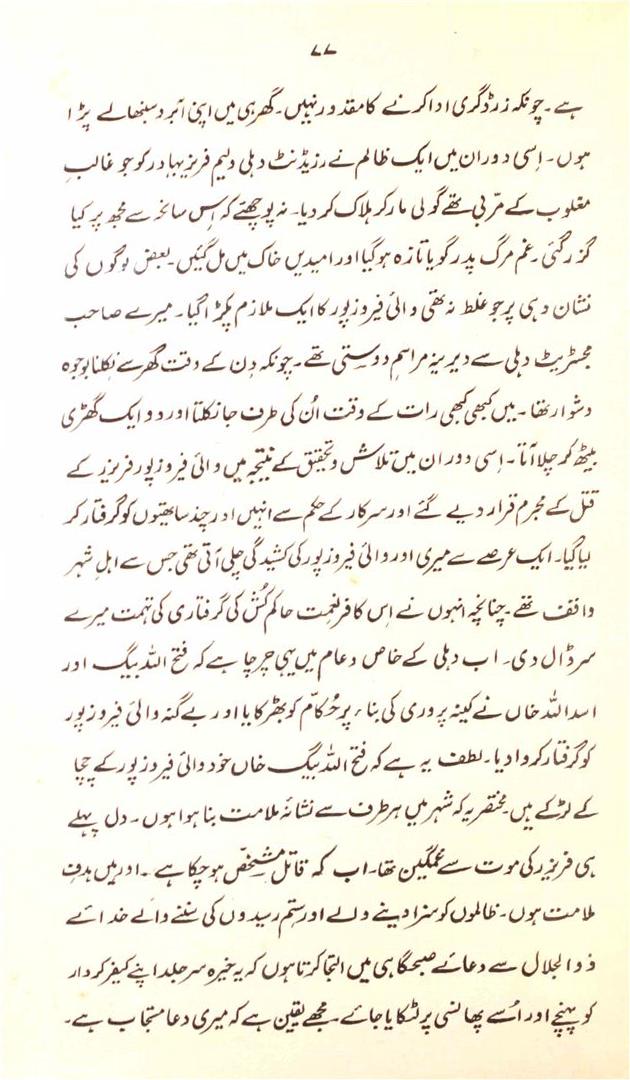 ۷۷
ہے۔ چونکہ زرڈگری ادا کرنے کا مقدور نہیں۔ گھر ہی میں اپنی آبرو سنبھالے پڑا
ہوں۔ اِسی دوران میں ایک ظالم نے رزیڈنٹ دہلی ولیم فریزر بہادر کو جو غالبِ
مغلوب کے مربّی تھے گولی مار کر ہلاک کر دیا۔ نہ پوچھئے کہ اِس سانحہ سے مجھ پر کیا
گزر گئی۔ غم مرگ پدر گویا تازہ ہو گیا اور امیدیں خاک میں مل گئیں۔ بعض لوگوں کی
نشان دہی پر جو غلط نہ تھی والئ فیروزپور کا ایک ملازم پکڑا گیا۔ میرے صاحب
مجسٹریٹ دہلی سے دیرینہ مراسمِ دوستی تھے۔ چونکہ دِن کے وقت گھر سے نکلنا بوجوہ
دشوار تھا۔ میں کبھی کبھی رات کے وقت اُن کی طرف جا نکلتا اور دو ایک گھڑی
بیٹھ کر چلا آتا۔ اِسی دوران میں تلاش و تحقیق کے نتیجہ میں والئ فیروزپور فریزر کے
قتل کے مجرم قرار دیے گئے اور سرکار کے حکم سے انہیں اور چند ساتھیوں کو گرفتار کر
لیا گیا۔ ایک عرصے سے میری اور والئ فیروزپور کی کشیدگی چلی آتی تھی جس سے اہلِ شہر
واقف تھے۔ چنانچہ انہوں نے اِس کافر نعمت حاکم کُش کی گرفتاری کی تہمت میرے
سر ڈال دی۔ اب دہلی کے خاص و عام میں یہی چرچا ہے کہ فتح اللہ بیگ اور
اسد اللہ خاں نے کینہ پروری کی بناء پر حُکاّم کو بھڑکایا اور بے گنہ والئ فیروزپور
کو گرفتار کروا دیا۔ لطف یہ ہے کہ فتح اللہ بیگ خاں خود والئ فیروزپور کے چچا
کے لڑکے ہیں۔ مختصر یہ کہ شہر میں ہر طرف سے نشانۂ ملامت بنا ہوا ہوں۔ دل پہلے
ہی فریزر کی موت سے غمگین تھا۔ اب کہ قاتل مشخّص ہو چکا ہے۔ اور میں ہدفِ
ملامت ہوں۔ ظالموں کو سزا دینے والے اور ستم رسیدوں کی سننے والے خدائے
ذوالجلال سے دعائے صبحگاہی میں التجا کرتا ہوں کہ یہ خیرہ سر جلد اپنے کیفر کردار
کو پہنچے اور اُسے پھانسی پر لٹکایا جائے۔ مجھے یقین ہے کہ میری دعا مستجاب ہے۔